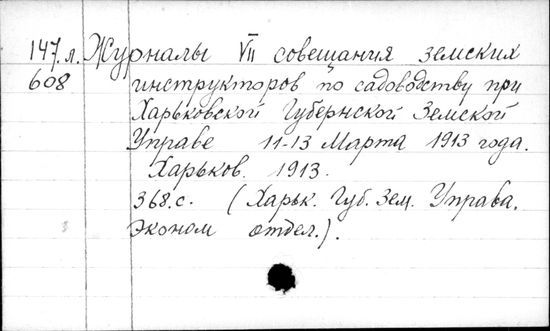 147.л. Журналы VII совещания земских
608 инструкторов по садоводству при
Харьковской Губернской Земской
Управе 11-13 Марта 1913 года.
Харьков. 1913.
368.с. (Харьк. Губ. Зем. Управа.
Эконом отдел.).